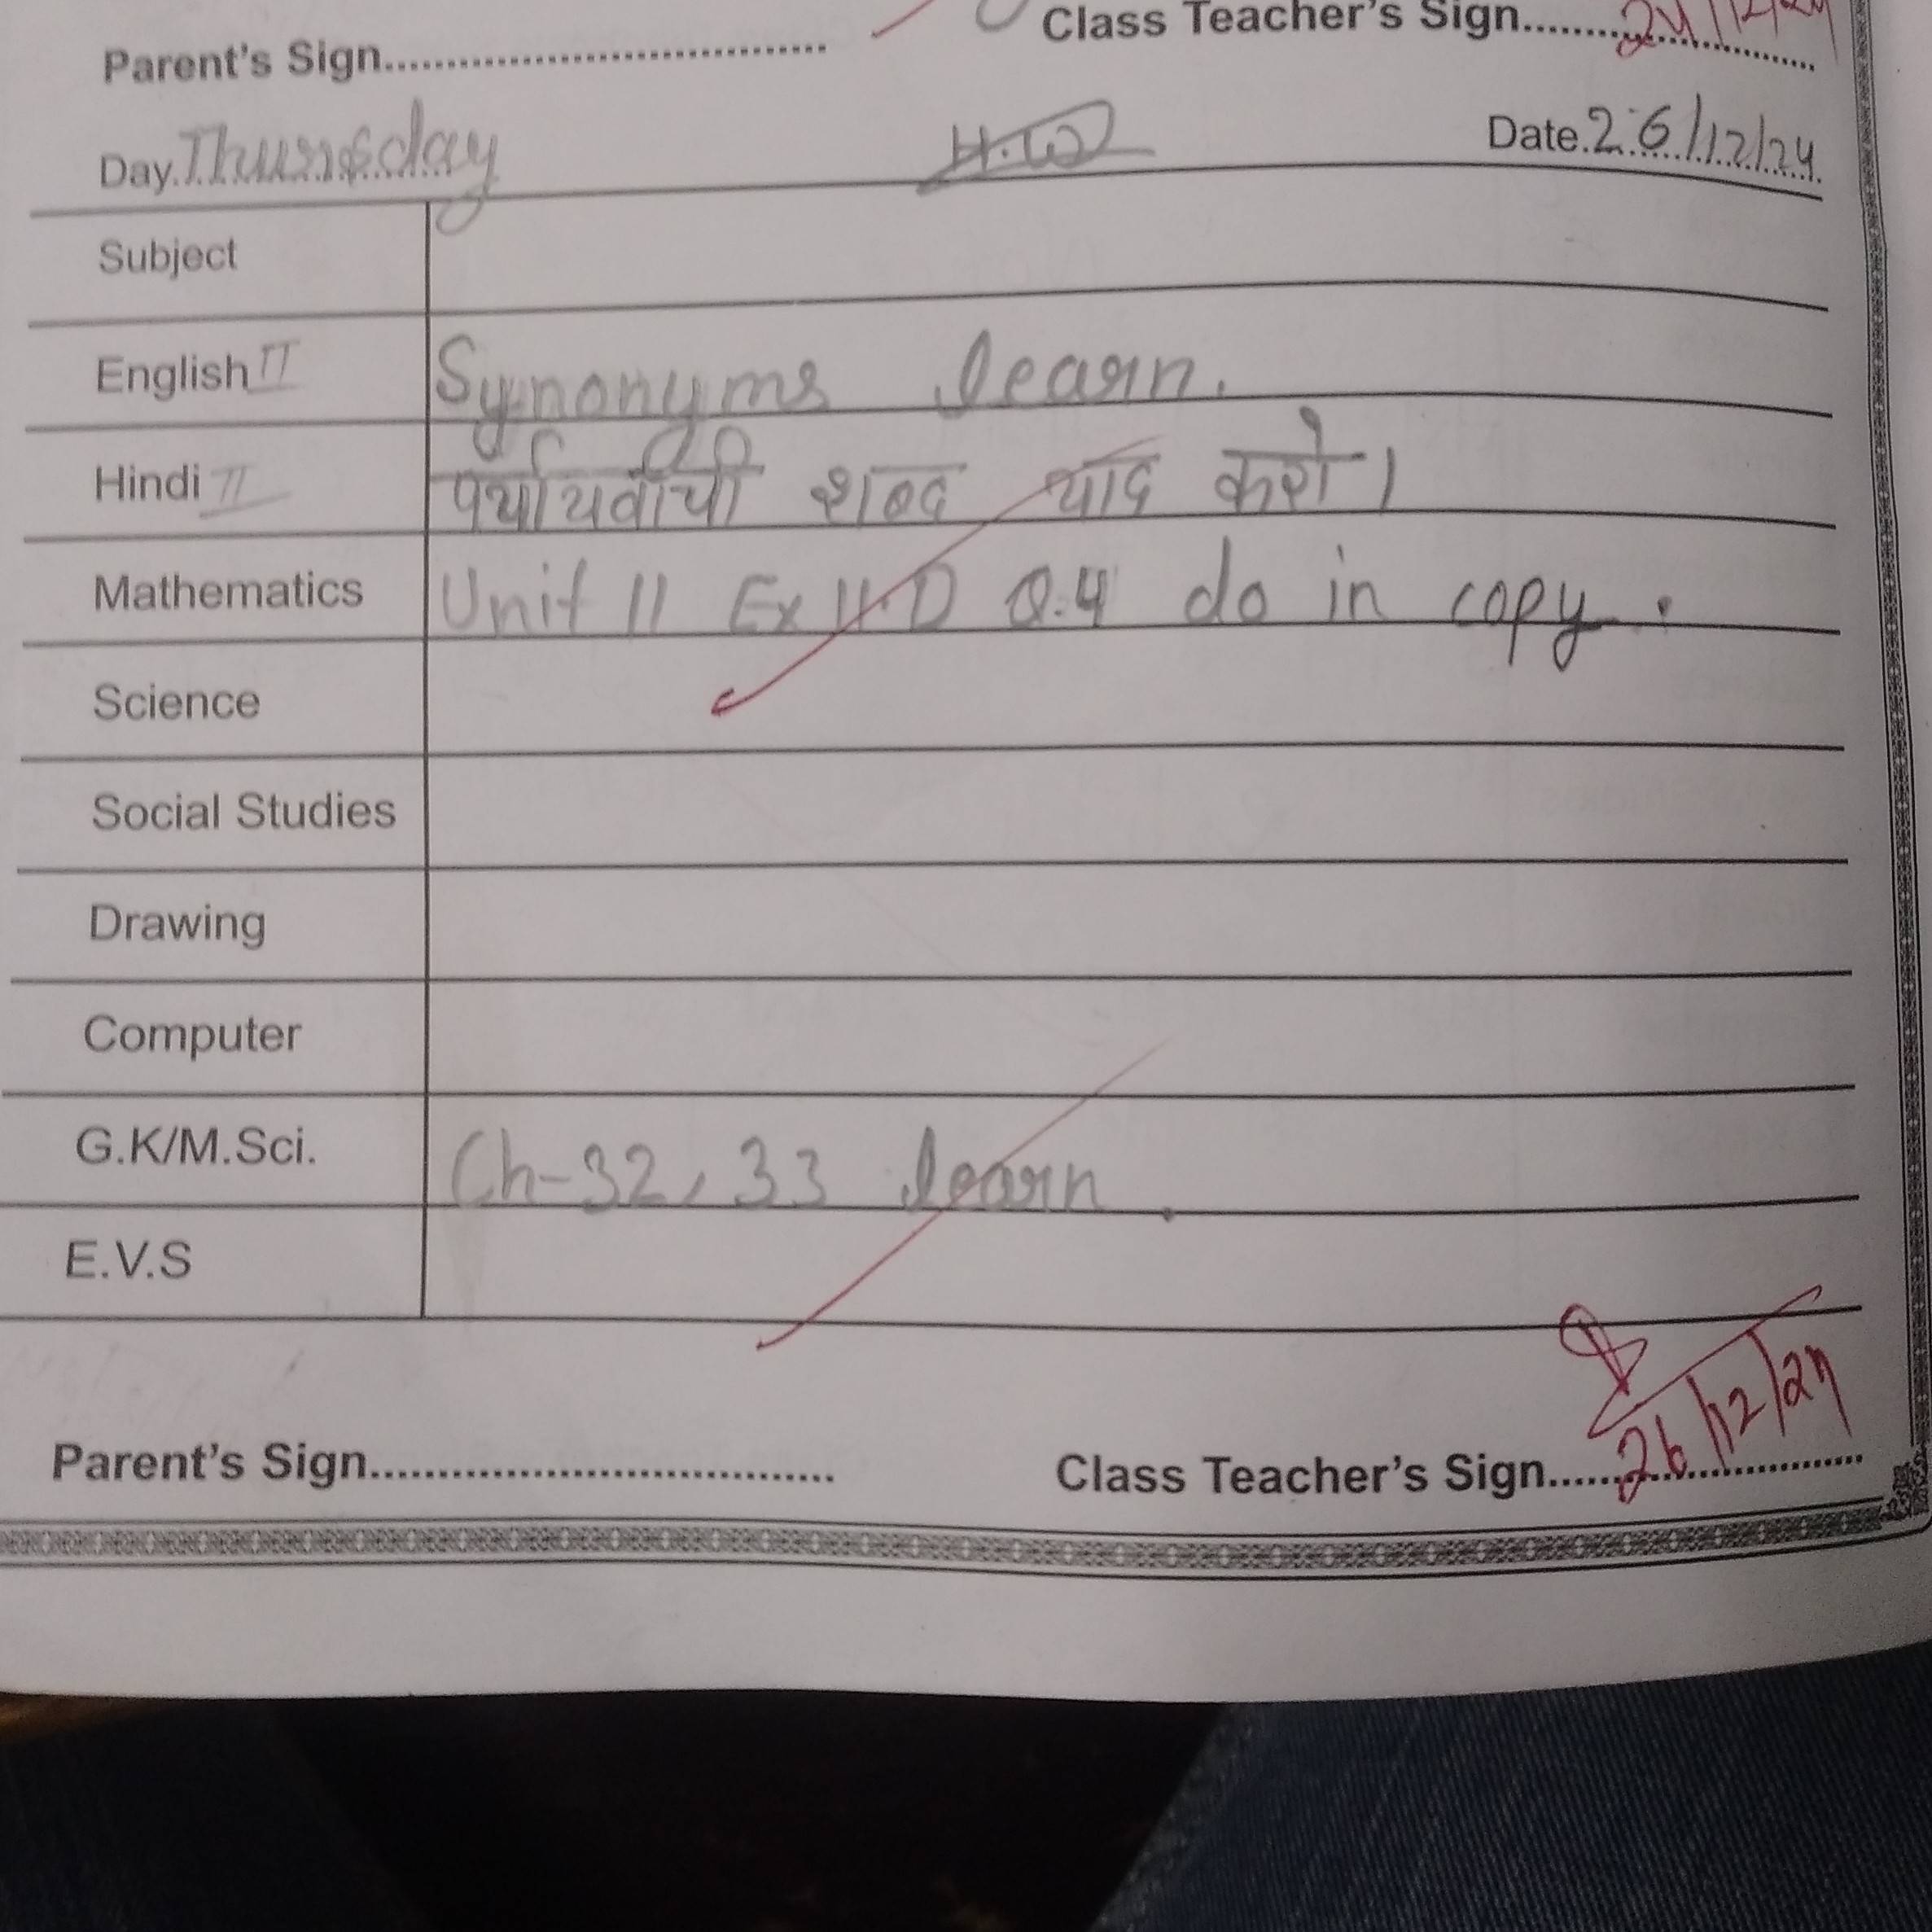 Parent's Sign.................................... Class Teacher's Sign..... 24/12/24
Day. Thursday H.W Date. 26/12/24
Subject
English II Synonyms learn.
Hindi II पर्यायवाची शब्द याद करो।
Mathematics Unit 11 Ex 11.D Q.4 do in copy.
Science
Social Studies
Drawing
Computer
G.K/M.Sci. Ch-32, 33 learn.
E.V.S
Parent's Sign.................................... Class Teacher's Sign..... 26/12/24